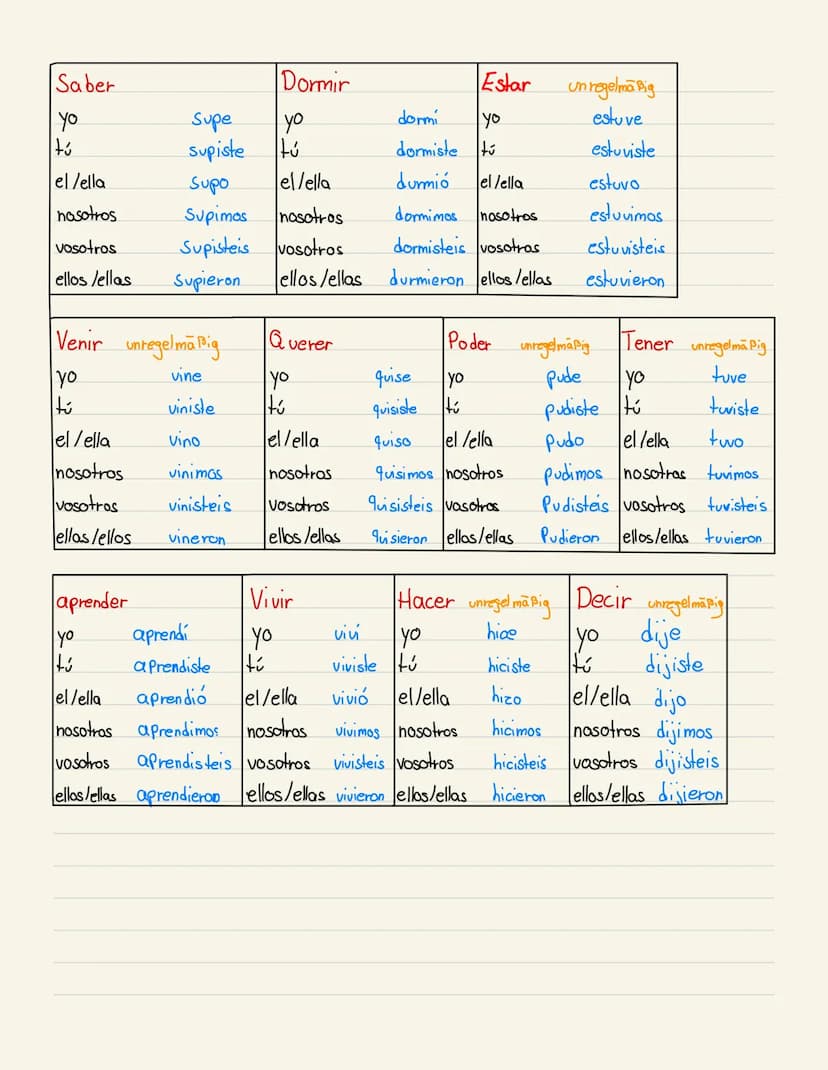 Saber Dormir Estar unregelmäßig
yo supe yo dormí yo estuve
tú supiste tú dormiste tú estuviste
el/ella supo el/ella durmió el/ella estuvo
nosotros supimos nosotros dormimos nosotros estuvimos
vosotros supisteis vosotros dormisteis vosotros estuvisteis
ellos/ellas supieron ellos/ellas durmieron ellos/ellas estuvieron
Venir unregelmäßig Querer Poder unregelmäßig Tener unregelmäßig
yo vine yo quise yo pude yo tuve
tú viniste tú quisiste tú pudiste tú tuviste
el/ella vino el/ella quiso el/ella pudo el/ella tuvo
nosotros vinimos nosotros quisimos nosotros pudimos nosotros tuvimos
vosotros vinisteis vosotros quisisteis vosotros Pudisteis vosotros tuvisteis
ellas/ellos vineron ellos/ellas quisieron ellas/ellas Pudieron ellos/ellas tuvieron
aprender Vivir Hacer unregelmäßig Decir unregelmäßig
yo aprendí yo viví yo hice yo dije
tú aprendiste tú viviste tú hiciste tú dijiste
el/ella aprendió el/ella vivió el/ella hizo el/ella dijo
nosotros aprendimos nosotros vivimos nosotros hicimos nosotros dijimos
vosotros aprendisteis vosotros vivisteis vosotros hicisteis vosotros dijisteis
ellos/ellas aprendieron ellos/ellas vivieron ellos/ellas hicieron ellos/ellas dijieron